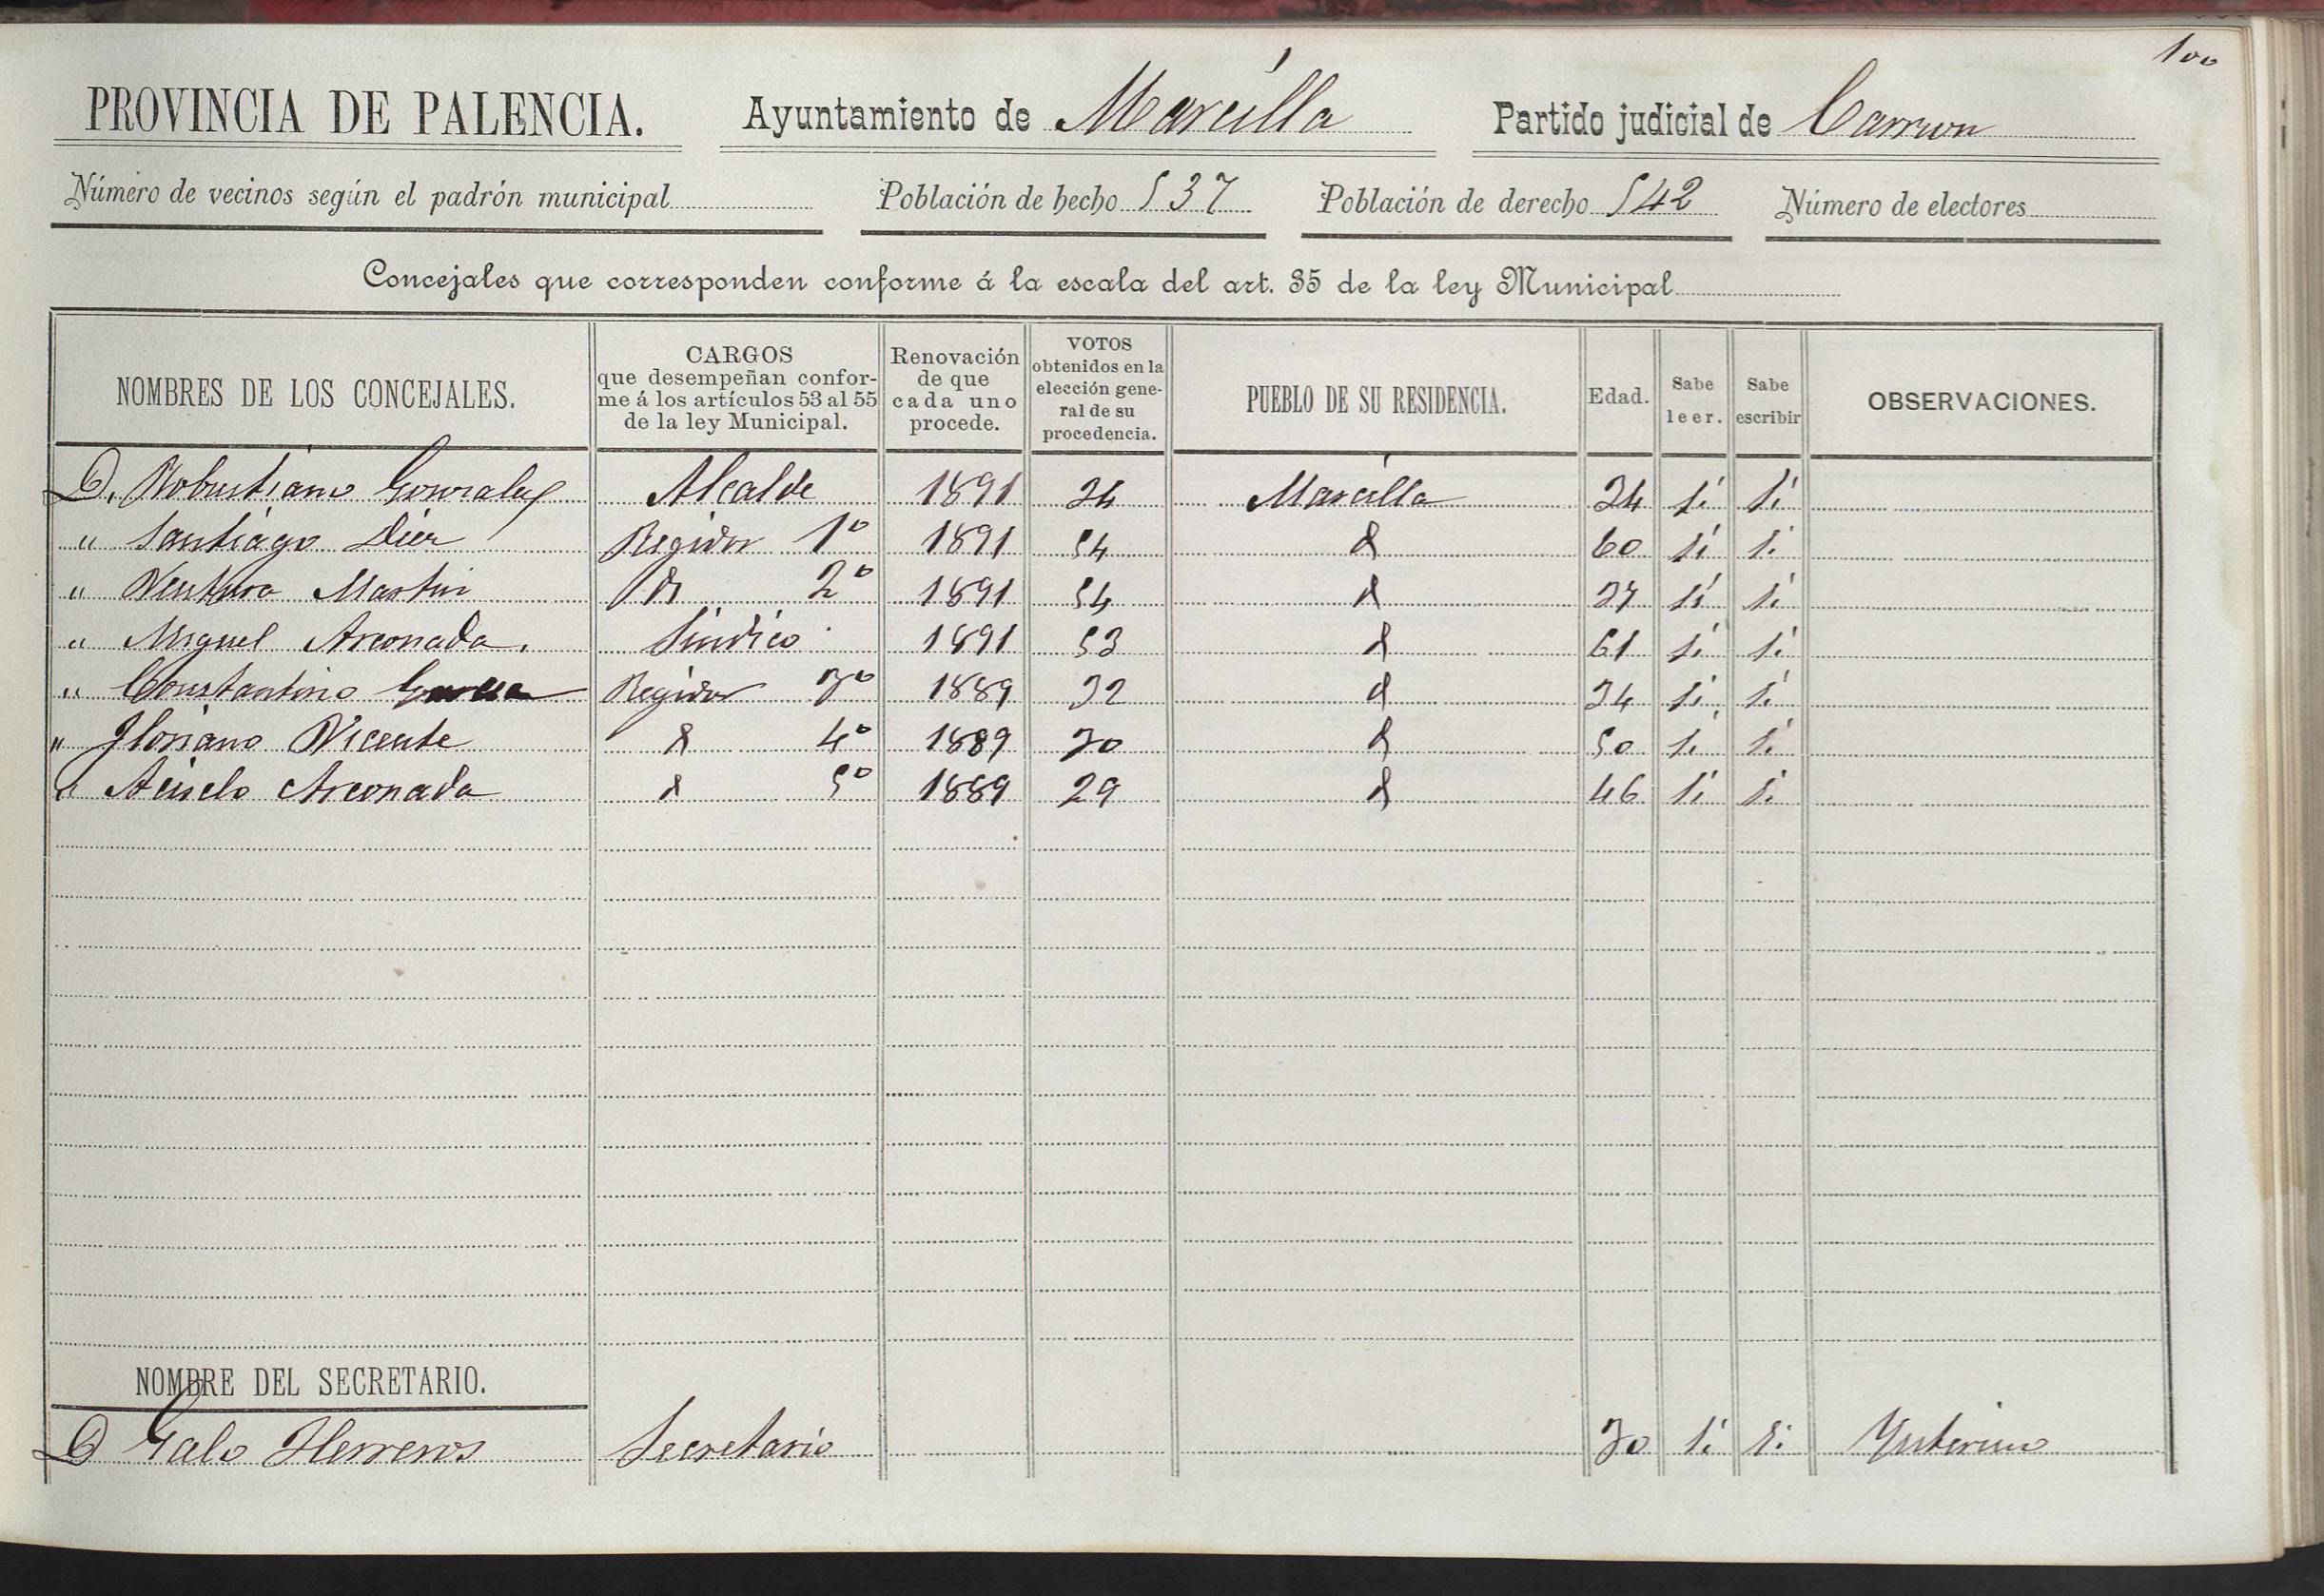 100
PROVINCIA DE PALENCIA. Ayuntamiento de Marcilla Partido judicial de Carrion
Número de vecinos según el padrón municipal Población de hecho 537 Población de derecho 542 Número de electores
Concejales que corresponden conforme á la escala del art. 35 de la ley Municipal
NOMBRES DE LOS CONCEJALES. CARGOS que desempeñan confor- me á los artículos 53 al 55 de la ley Municipal. Renovación de que cada uno procede. VOTOS obtenidos en la elección gene- ral de su procedencia. PUEBLO DE SU RESIDENCIA. Edad. Sabe leer. Sabe escribir OBSERVACIONES.
D. Robustiano Gonzalez Alcalde 1891 34 Marcilla 34 si si
" Santiago Diez Regidor 1º 1891 54 d 60 si si
" Ventura Martin d 2º 1891 54 d 37 si si
" Miguel Arconada. Sindico 1891 53 d 61 si si
" Constantino Garcia Regidor 3º 1889 32 d 34 si si
" Floriano Vicente d 4º 1889 30 d 50 si si
" Acisclo Arconada d 5º 1889 29 d 46 si si
NOMBRE DEL SECRETARIO.
D Galo Herreros Secretario 30 si si Ynterino